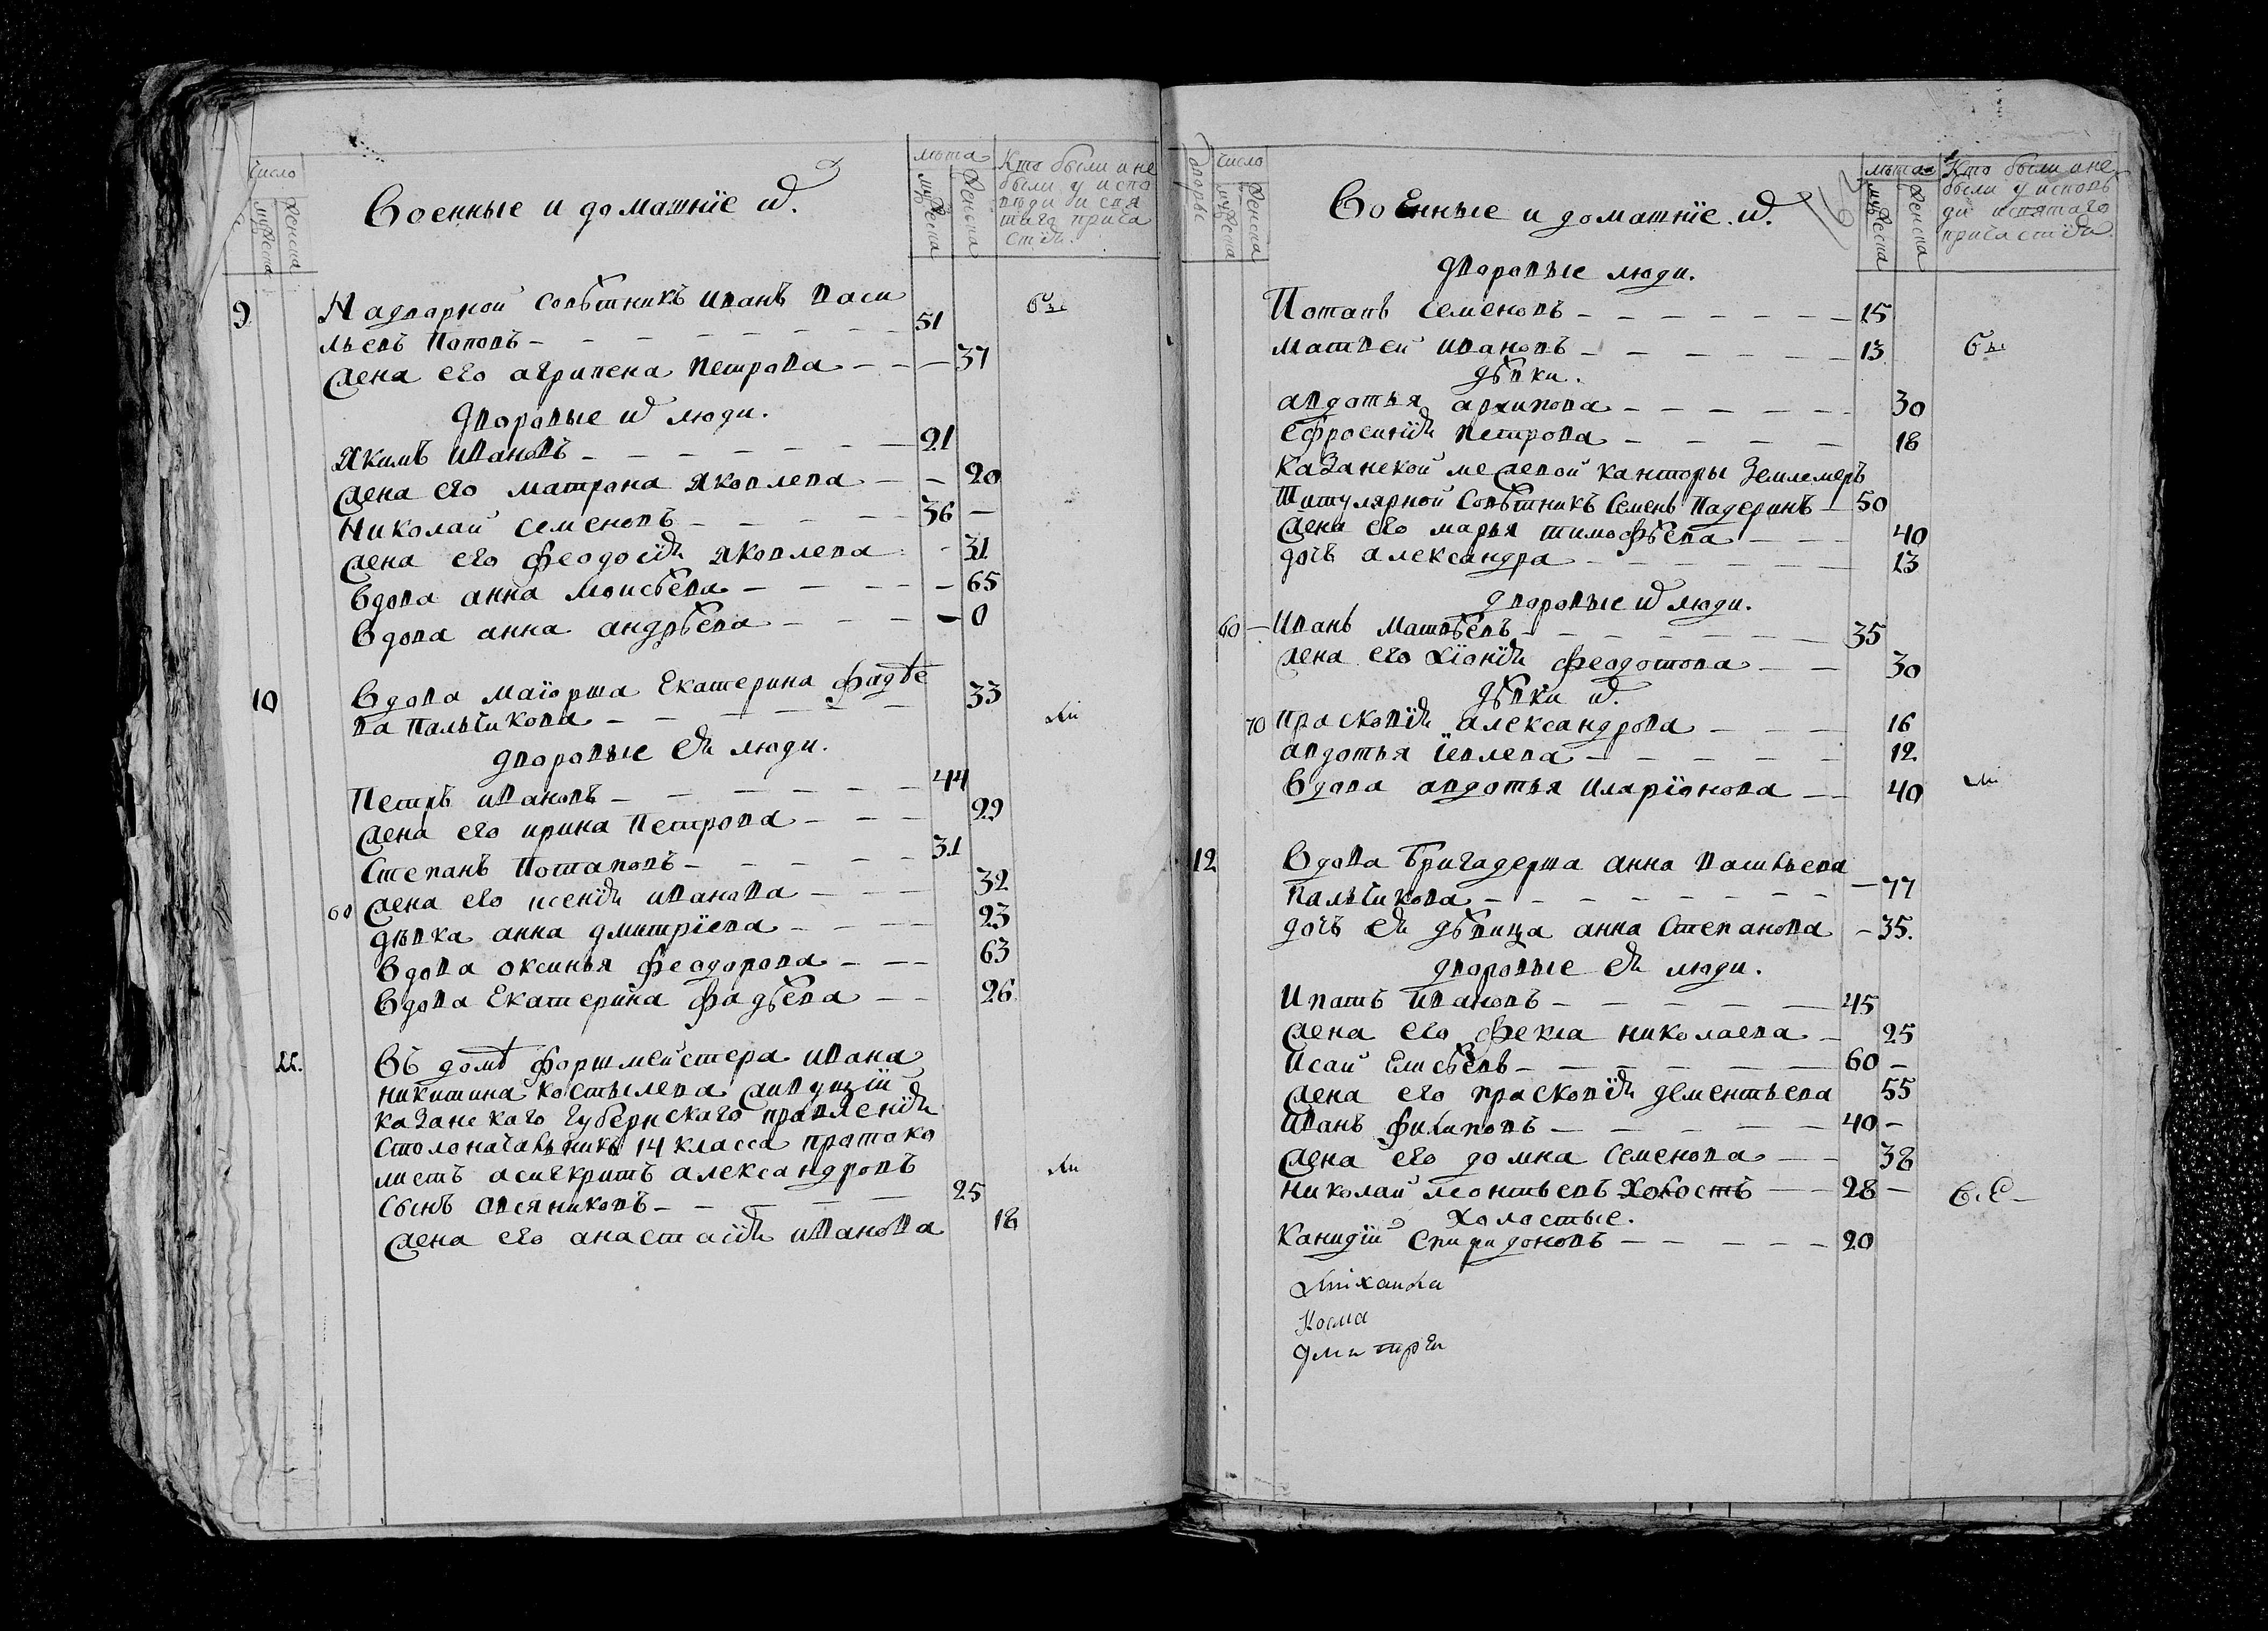 число
мужеска
женска
Военные и домашнїе ихъ.
лѣта
мужеска
женска
Кто были и не
были у испо
вѣди и свя
таго прича
стїя.
9
Надворной Совѣтникъ иванъ Васи
льевъ Поповъ — 51
жена его агрипена Петрова — 37
Дворовые ихъ люди.
Якимъ ивановъ — 21
жена его матрона Яковлева — 20
Николай Семеновъ — 36 —
жена его феодосїя Яковлева — 31
Вдова анна Моисѣева — 65
Вдова анна андрѣева — 0
10
Вдова маїорша Екатерина фадѣе
ва Пальчикова — 33
Дворовые ея люди.
Петръ ивановъ — 44
жена его ирина Петрова — 29
Степанъ Потаповъ — 31
60 жена его ксенїя иванова — 32
дѣвка анна дмитрїева — 23
Вдова оксинья феодорова — 63
Вдова Екатерина фадѣева — 26
11.
Въ домѣ форшмейстера ивана
никитина Костылева живущїй
казанскаго Губернскаго правленїя
Столоначальникъ 14 класса протоко
листъ асигкритъ александровъ
Сынъ овсяниковъ — 25
жена его анастасїя иванова 18
дворы
число
мужеска
женска
Военные и домашнїе ихъ.
лѣта
мужеска
женска
Кто были и не
были у исповѣ
ди и святаго
причастїя.
Дворовые люди.
Потапъ Семеновъ — 15
Матвей ивановъ — 13
Дѣвки.
авдотья архипова — 30
ефросинїя Петрова — 18
Казанской межевой канторы Землемеръ
Титулярной Совѣтникъ Семенъ Падеринъ — 50
жена его марья тимофѣева — 40
дочь александра — 13
Дворовые ихъ люди.
60 — Иванъ Матвѣевъ — 35
жена его хїонїя феодотова — 30
Дѣвки ихъ
70 Прасковїя александрова — 16
авдотья їевлева — 12
Вдова авдотья иларїонова — 40
12
Вдова бригадерша анна Васильева
Пальчикова — 77
дочь ея дѣвица анна Степанова — 35.
Дворовые ея люди.
Ипатъ ивановъ — 45
жена его фекла николаева — 25
Исай Елисѣевъ — 60 —
жена его прасковїя дементьева 55
Иванъ филиповъ — 40 —
жена его домна Семенова — 38
Николай леонтьевъ Холостъ — 28 —
Холостые.
Канидїй Спиридоновъ — 20
Михаила
Косма
Дмитрей